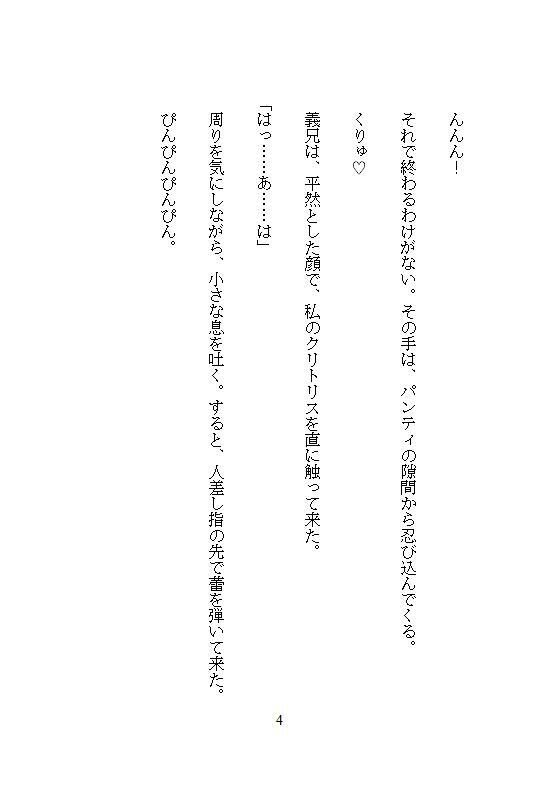 んんん！
それで終わるわけがない。その手は、パンティの隙間から忍び込んでくる。
くりゅ♡
義兄は、平然とした顔で、私のクリトリスを直に触って来た。
「はっ……あ……は」
周りを気にしながら、小さな息を吐く。すると、人差し指の先で蕾を弾いて来た。
ぴんぴんぴんぴん。
4